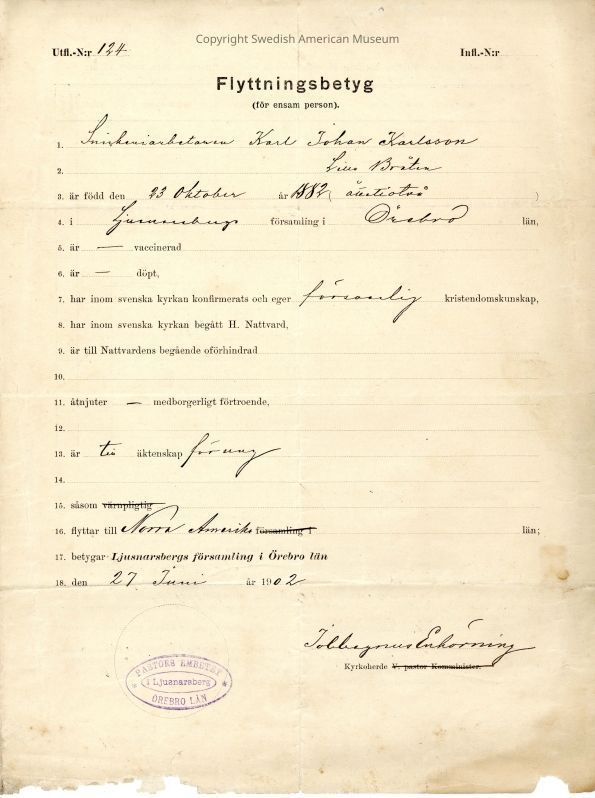 Copyright Swedish American Museum
Utfl.-N:r 124 Infl.-N:r
Flyttningsbetyg
(för ensam person).
1. Snickeriarbetaren Karl Johan Karlsson
2. Lilla Bråten
3. är född den 23 Oktober år 1882 ( åttiotvå )
4. i Ljusnarsbergs församling i Örebro län,
5. är — vaccinerad
6. är — döpt,
7. har inom svenska kyrkan konfirmerats och eger församlig kristendomskunskap,
8. har inom svenska kyrkan begått H. Nattvard,
9. är till Nattvardens begående oförhindrad
10.
11. åtnjuter — medborgerligt förtroende,
12.
13. är till äktenskap för ung
14.
15. såsom värnpligtig
16. flyttar till Norra Amerika församling i län;
17. betygar Ljusnarsbergs församling i Örebro län
18. den 27 Juni år 1902
Enhörning
Kyrkoherde V. pastor Komminister.
PASTORS EMBETET
i Ljusnarsberg
ÖREBRO LÄN